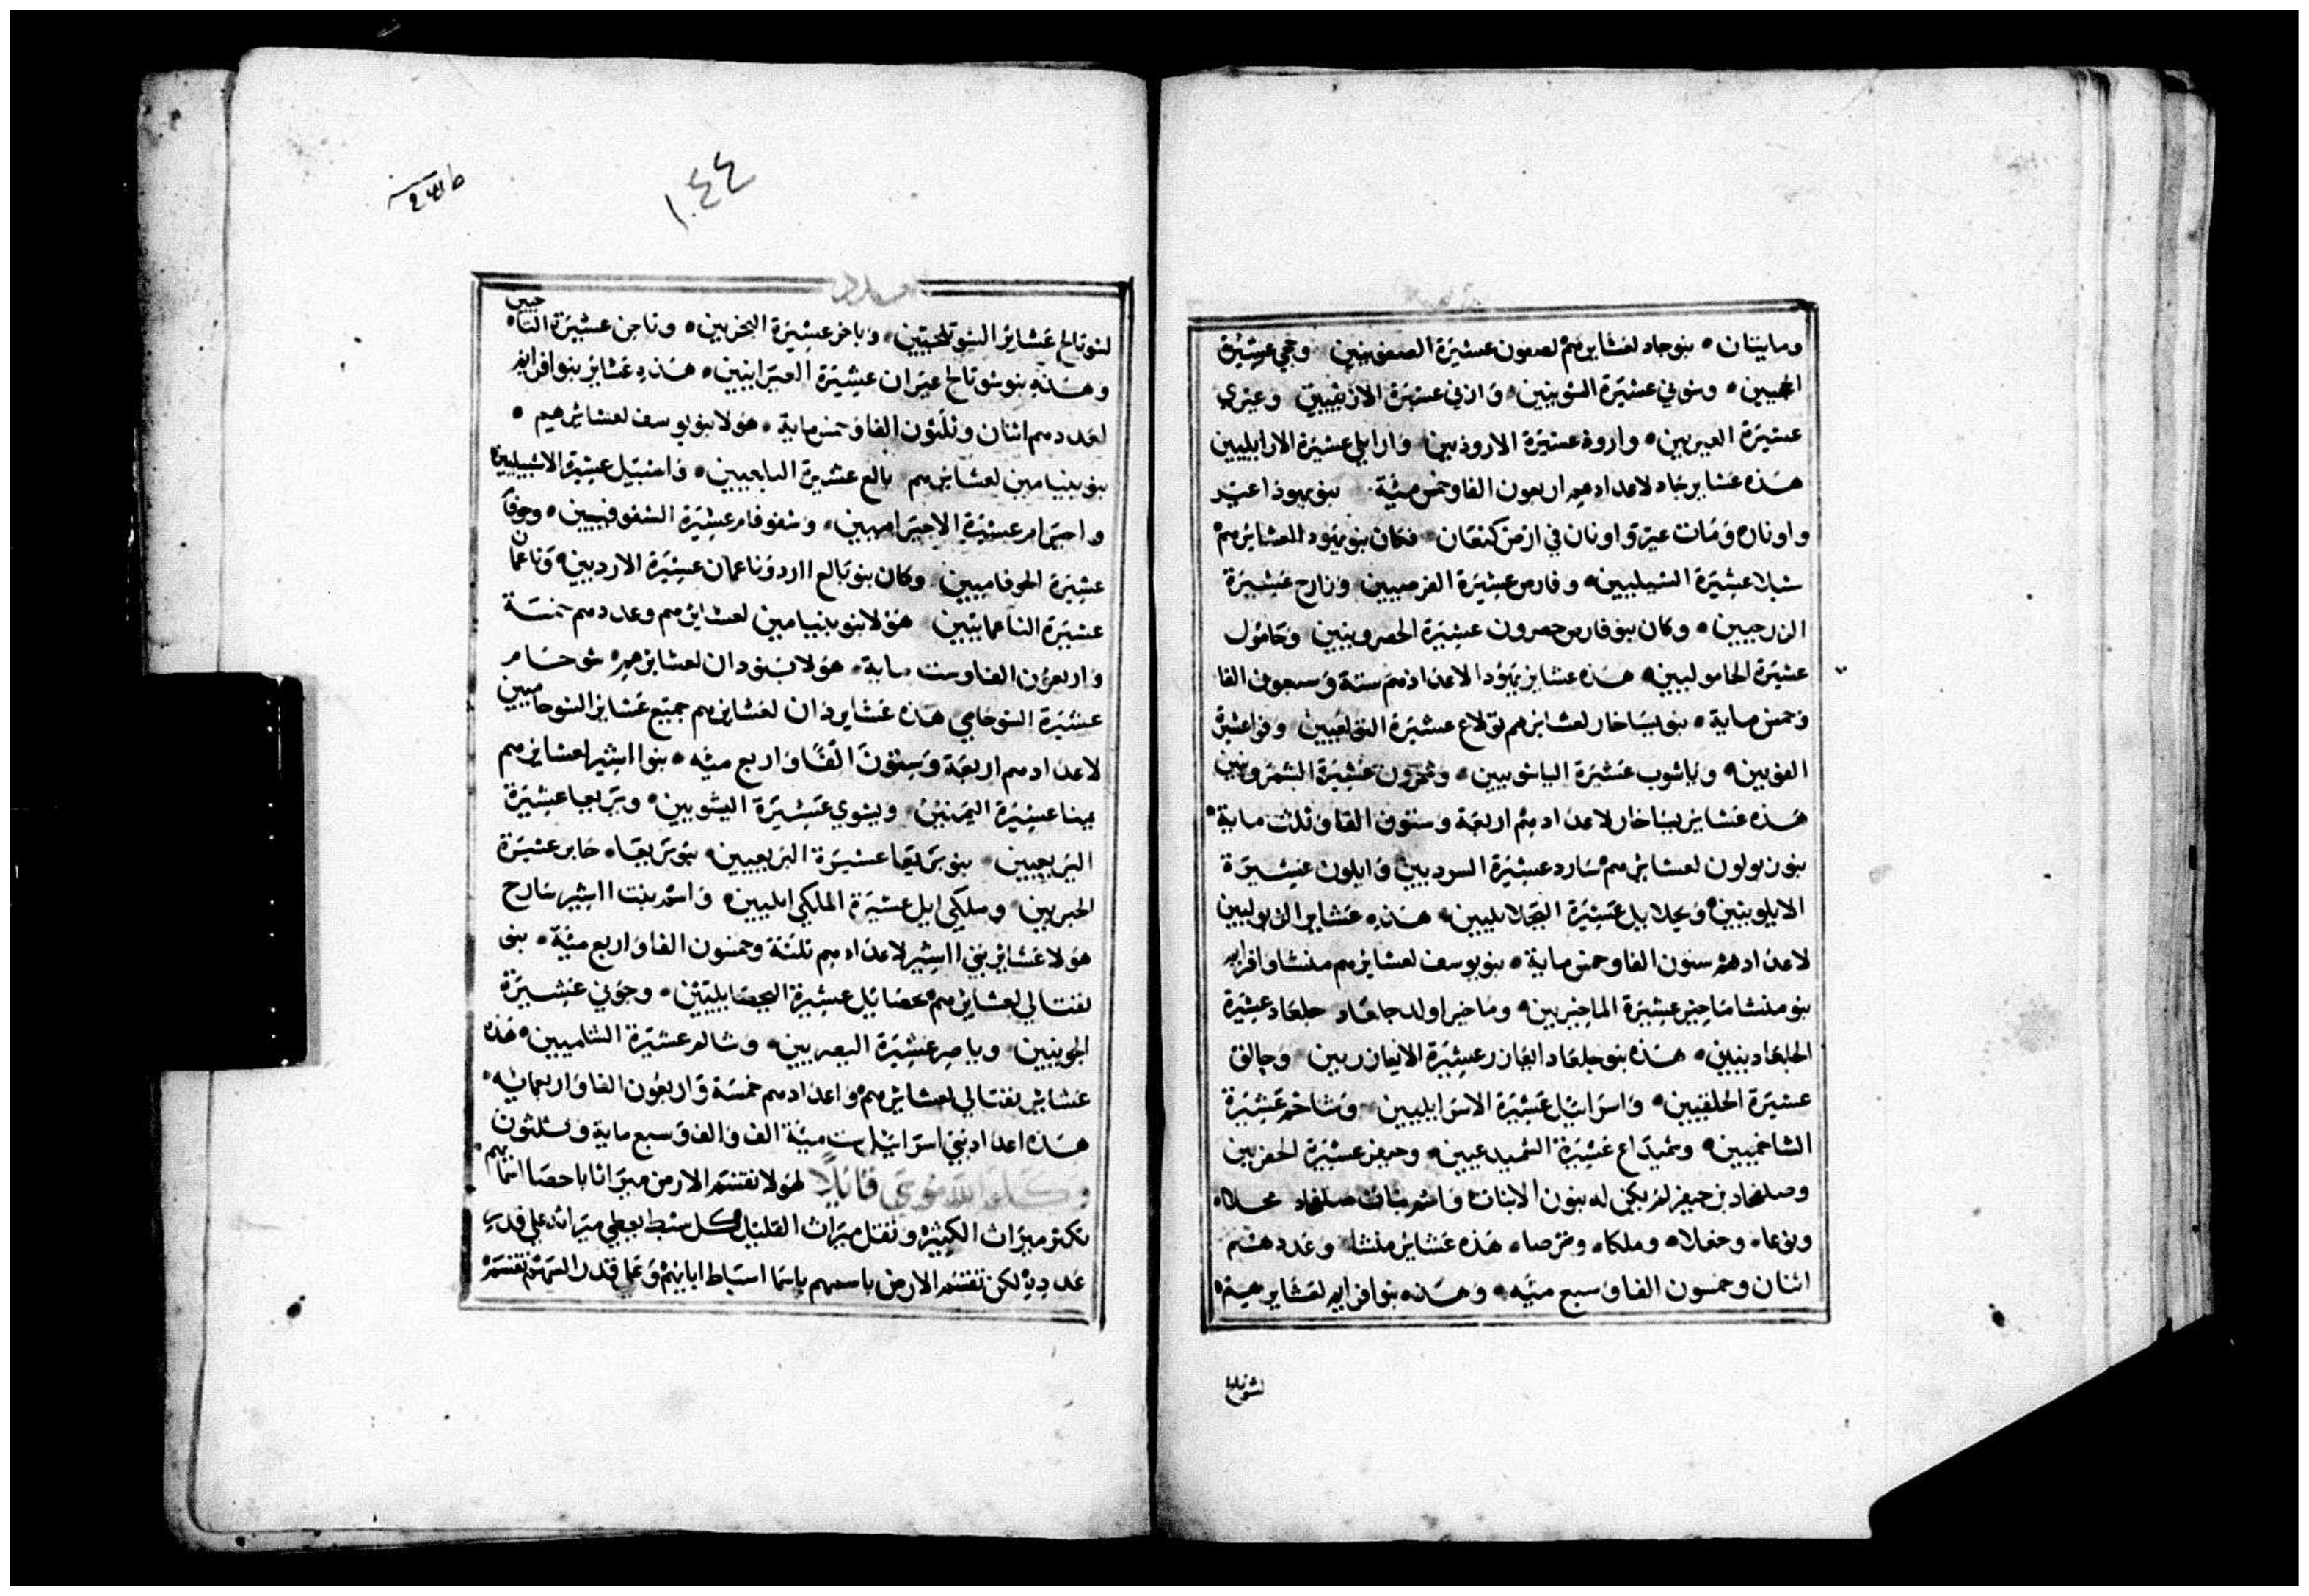 ومايتان ٥ بنو جاد لعشايرهم لصعون عشيرة الصعونيين وحجي عشيرة
الحجيين ٥ وسوني عشيرة السونيين ٥ وازني عشيرة الازنيين وعيري
عشيرة العيريين ٥ وارود عشيرة الاروديين وارايلي عشيرة الارايليين
هذه عشاير جاد لاعدادهم اربعون الفا وخمس مئة بنو يهوذا عير
واونان ٥ ومات عير واونان في ارض كنعان فكان بنو يهودا لعشايرهم
شيلا عشيرة الشيليين ٥ وفارص عشيرة الفرصيين وزارح عشيرة
الزرحيين ٥ وكان بنو فارص حصرون عشيرة الحصرونيين وحامول
عشيرة الحاموليين ٥ هذه عشاير يهودا لاعدادهم ستة وسبعون الفا
وخمس ماية ٥ بنو يساخار لعشايرهم تولاع عشيرة التولعيين وفوا عشيرة
الفويين ٥ وياشوب عشيرة الياشوبيين ٥ وشمرون عشيرة الشمرونيين
هذه عشاير يساخار لاعدادهم اربعة وستون الفا وثلث ماية ٥
بنو زبولون لعشايرهم سارد عشيرة السرديين وايلون عشيرة
الايلونيين ٥ ويحلاييل عشيرة اليحلايليين ٥ هذه عشاير الزبوليين
لاعدادهم ستون الفا وخمس ماية ٥ بنو يوسف لعشايرهم منشا وافرايم
بنو منشا ماخير عشيرة الماخيريين ٥ وماخير اولد جلعاد جلعاد عشيرة
الجلعاديين ٥ هذه بنو جلعاد ايعازر عشيرة الايعازريين وحالق
عشيرة الحلقيين ٥ واسراييل عشيرة الاسراييليين وشاخم عشيرة
الشاخميين ٥ وشميداع عشيرة الشميدعيين ٥ وحيفر عشيرة الحفريين
وصلفحاد بن حيفر لم يكن له بنون الا بنات واسم بنات صلفحاد محلاه
ونوعا ٥ وحغلا ٥ وملكا ٥ وترصا ٥ هذه عشاير منشا وعددهم
اثنان وخمسون الفا وسبع مئه ٥ وهذه بنو افرايم لعشايرهم ٥
لشوتالح
١٠٤٤
241b
لشوتالح عشاير الشوتلحيين ٥ وباخر عشيرة البخريين ٥ وتاحن عشيرة التاحنيين
وهذه بنو شوتالح عيران عشيرة العيرانيين ٥ هذه عشاير بنو افرايم
لعددهم اثنان وثلثون الفا وخمس ماية ٥ هولا بنو يوسف لعشايرهم ٥
بنو بنيامين لعشايرهم بالع عشيرة البالعيين ٥ واشبيل عشيرة الاشبيليين
واحيرام عشيرة الاحيراميين ٥ وشفوفام عشيرة الشفوفميين ٥ وحوفام
عشيرة الحوفاميين وكان بنو بالع ارد وناعمان عشيرة الارديين ٥ وناعمان
عشيرة الناعمانيين هولا بنو بنيامين لعشايرهم وعددهم خمسة
واربعون الفا وست ماية ٥ هولا بنو دان لعشايرهم شوحام
عشيرة الشوحامي هذه عشاير دان لعشايرهم جميع عشاير الشوحاميين
لاعدادهم اربعة وستون الفا واربع مئه ٥ بنو اشير لعشايرهم
يمنا عشيرة اليمنيين ويشوي عشيرة اليشويين ٥ وبريعا عشيرة
البريعيين ٥ بنو بريعا عشيرة البريعيين ٥ بنو بريعا ٥ حابر عشيرة
الحبريين ٥ وملكي ايل عشيرة الملكي ايليين ٥ واسم بنت اشير سارح
هولا عشاير بني اشير لاعدادهم ثلثة وخمسون الفا واربع مئة ٥ بنو
نفتالي لعشايرهم يحصاييل عشيرة اليحصايليين ٥ وجوني عشيرة
الجونيين ٥ وياصر عشيرة اليصريين ٥ وشالم عشيرة الشالميين ٥ هذه
عشاير نفتالي لعشايرهم واعدادهم خمسة واربعون الفا واربعمائه ٥
هذه اعداد بني اسراييل ست مئة الف والف وسبع ماية وثلثون
وكلم الله موسى قائلاً لهولا تقتسم الارض ميراثا باحصا اسمائهم ٥
تكثر ميراث الكثير وتقلل ميراث القليل كل سبط يعطي ميراثه على قدر
عدده لكن تقتسم الارض باسهم باسما اسباط ابايهم وعلى قدر السهم تقتسم